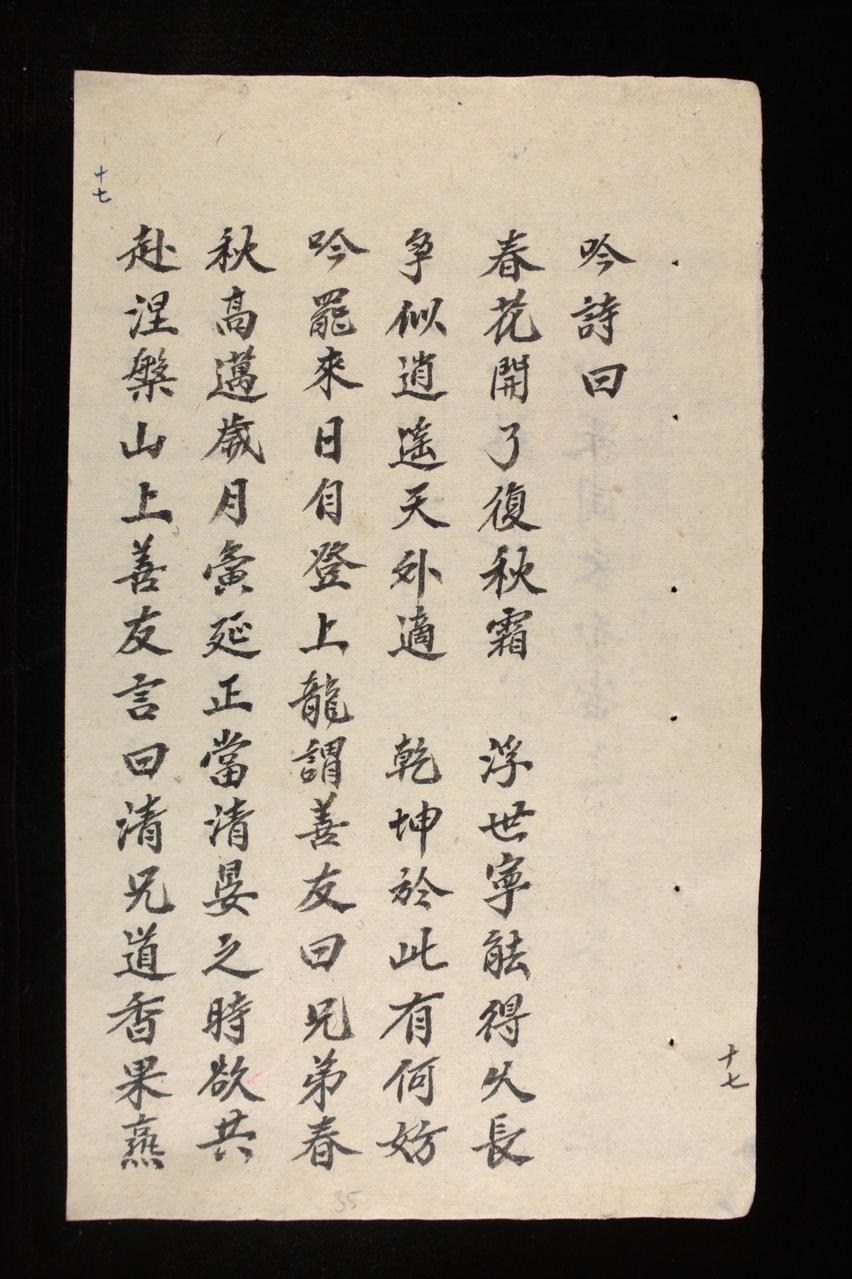 吟詩曰
春花開了復秋霜　浮世寧能得久長
爭似逍遙天外適　乾坤於此有何妨
吟罷來日自登上龍謂善友曰兄弟春
秋高邁歲月寅延正當清晏之時欲共
赴涅槃山上善友言曰清兄道香果燕
十七
十七
35